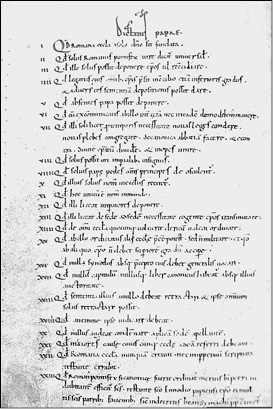 Dictatus papae.
I Qd Romana eccla solo dno sit fundata.
II Qd solus Romanus pontifex iure dicat universal.
III Qd ille solus possit deponere epos vl reconciliare.
IIII Qd legatus eius omib; epis presit in concilio etia inferioris gradus
& adversus eos sententia depositionis possit dare.
V Qd absentes papa possit deponere.
VI Qd cu excommunicatis ab illo int cetera nec in eade domo debem manere.
VII Qd illi soli licet p temporis necessitate novas leges condere.
novas plebes congregare. de canonica abbatia facere. & econ
tra. divite epatu divide & inopes unire.
VIII Qd solus possit uti imperialib; insigniis.
VIIII Qd solius pape pedes oms principes deosculent.
X Qd illius solius nom in ecclis recitet.
XI Qd hoc unicu e nom in mundo.
XII Qd illi liceat imperatores deponere.
XIII Qd illi liceat de sede ad sede necessitate cogente epos transmutare.
XIIII Qd de omi eccla quocunq; voluerit clericu valeat ordinare.
XV Qd ab illo ordinatus alii eccle preesse potest. sed n militare. et qd
ab aliquo epo n debet superiore gradu accipere.
XVI Qd nulla synodus absq; precepto eius debet generalis vocari.
XVII Qd nullu capitulu nullusq; liber canonicus habeat absq; illius
auctoritate.
XVIII Qd sententia illius a nullo debeat retractari & ipse omniu
solus retractare possit.
XVIIII Qd a nemine ipse iudicari debeat.
XX Qd nullus audeat condemnare aplica sede apellante.
XXI Qd maiores cause cuiuscunq; eccle ad ea referri debeant.
XXII Qd Romana eccla nunqua erravit nec inppetuu scriptura
testante errabit.
XXIII Qd Romanus pontifex si canonice fuerit ordinatus meritis b petri in
dubitanter efficit scs. testante sco ennodio papiensi epo ei mul
tis scis patrib; faventib; sic in decretis b symachi pp continet